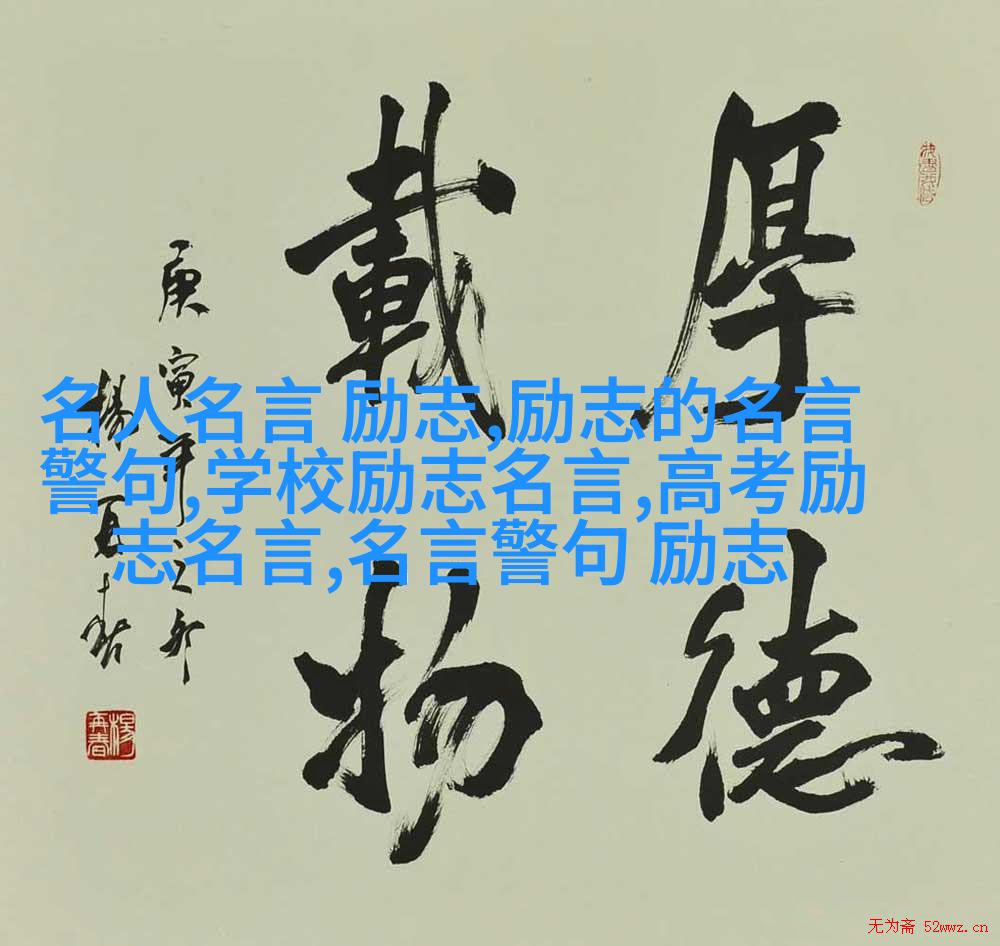 厚德
載物
庚寅年之卯
楊再春
楊再春
名人名言 励志,励志的名言
警句,学校励志名言,高考励
志名言,名言警句 励志
无为斋 52wwz.cn